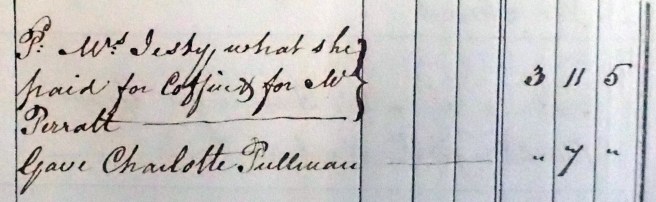 Pd. Mrs Jesty, what she
paid for Coffin &c for Mr 3 11 5
Perratt
Gave Charlotte Pullman " 7 "